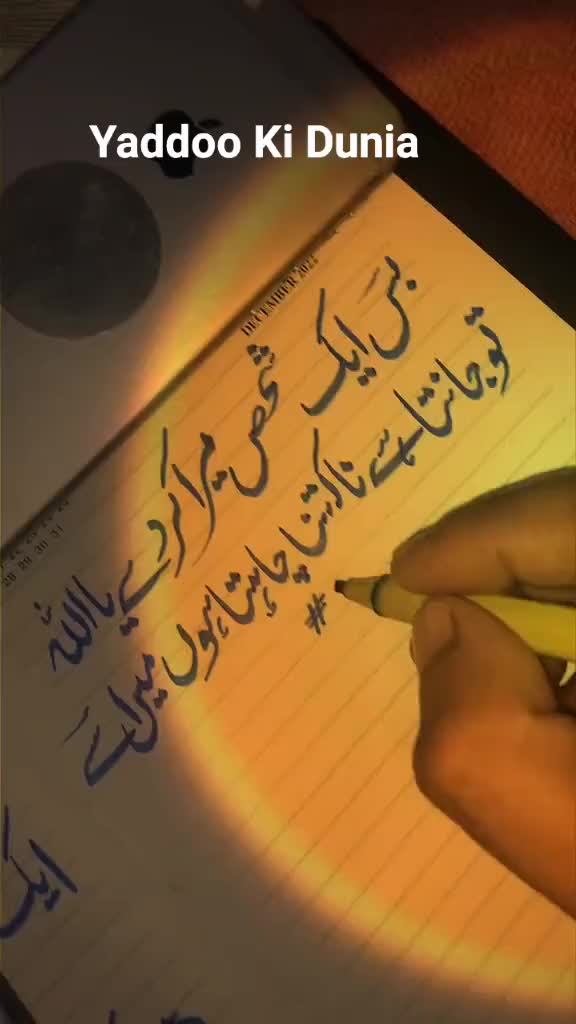 Yaddoo Ki Dunia
DECEMBER 2022
28 29 30 31
بس ایک شخص میرا کردے یا اللہ
تو جانتا ہے نا کتنا چاہتا ہوں میں اسے
#
ایک